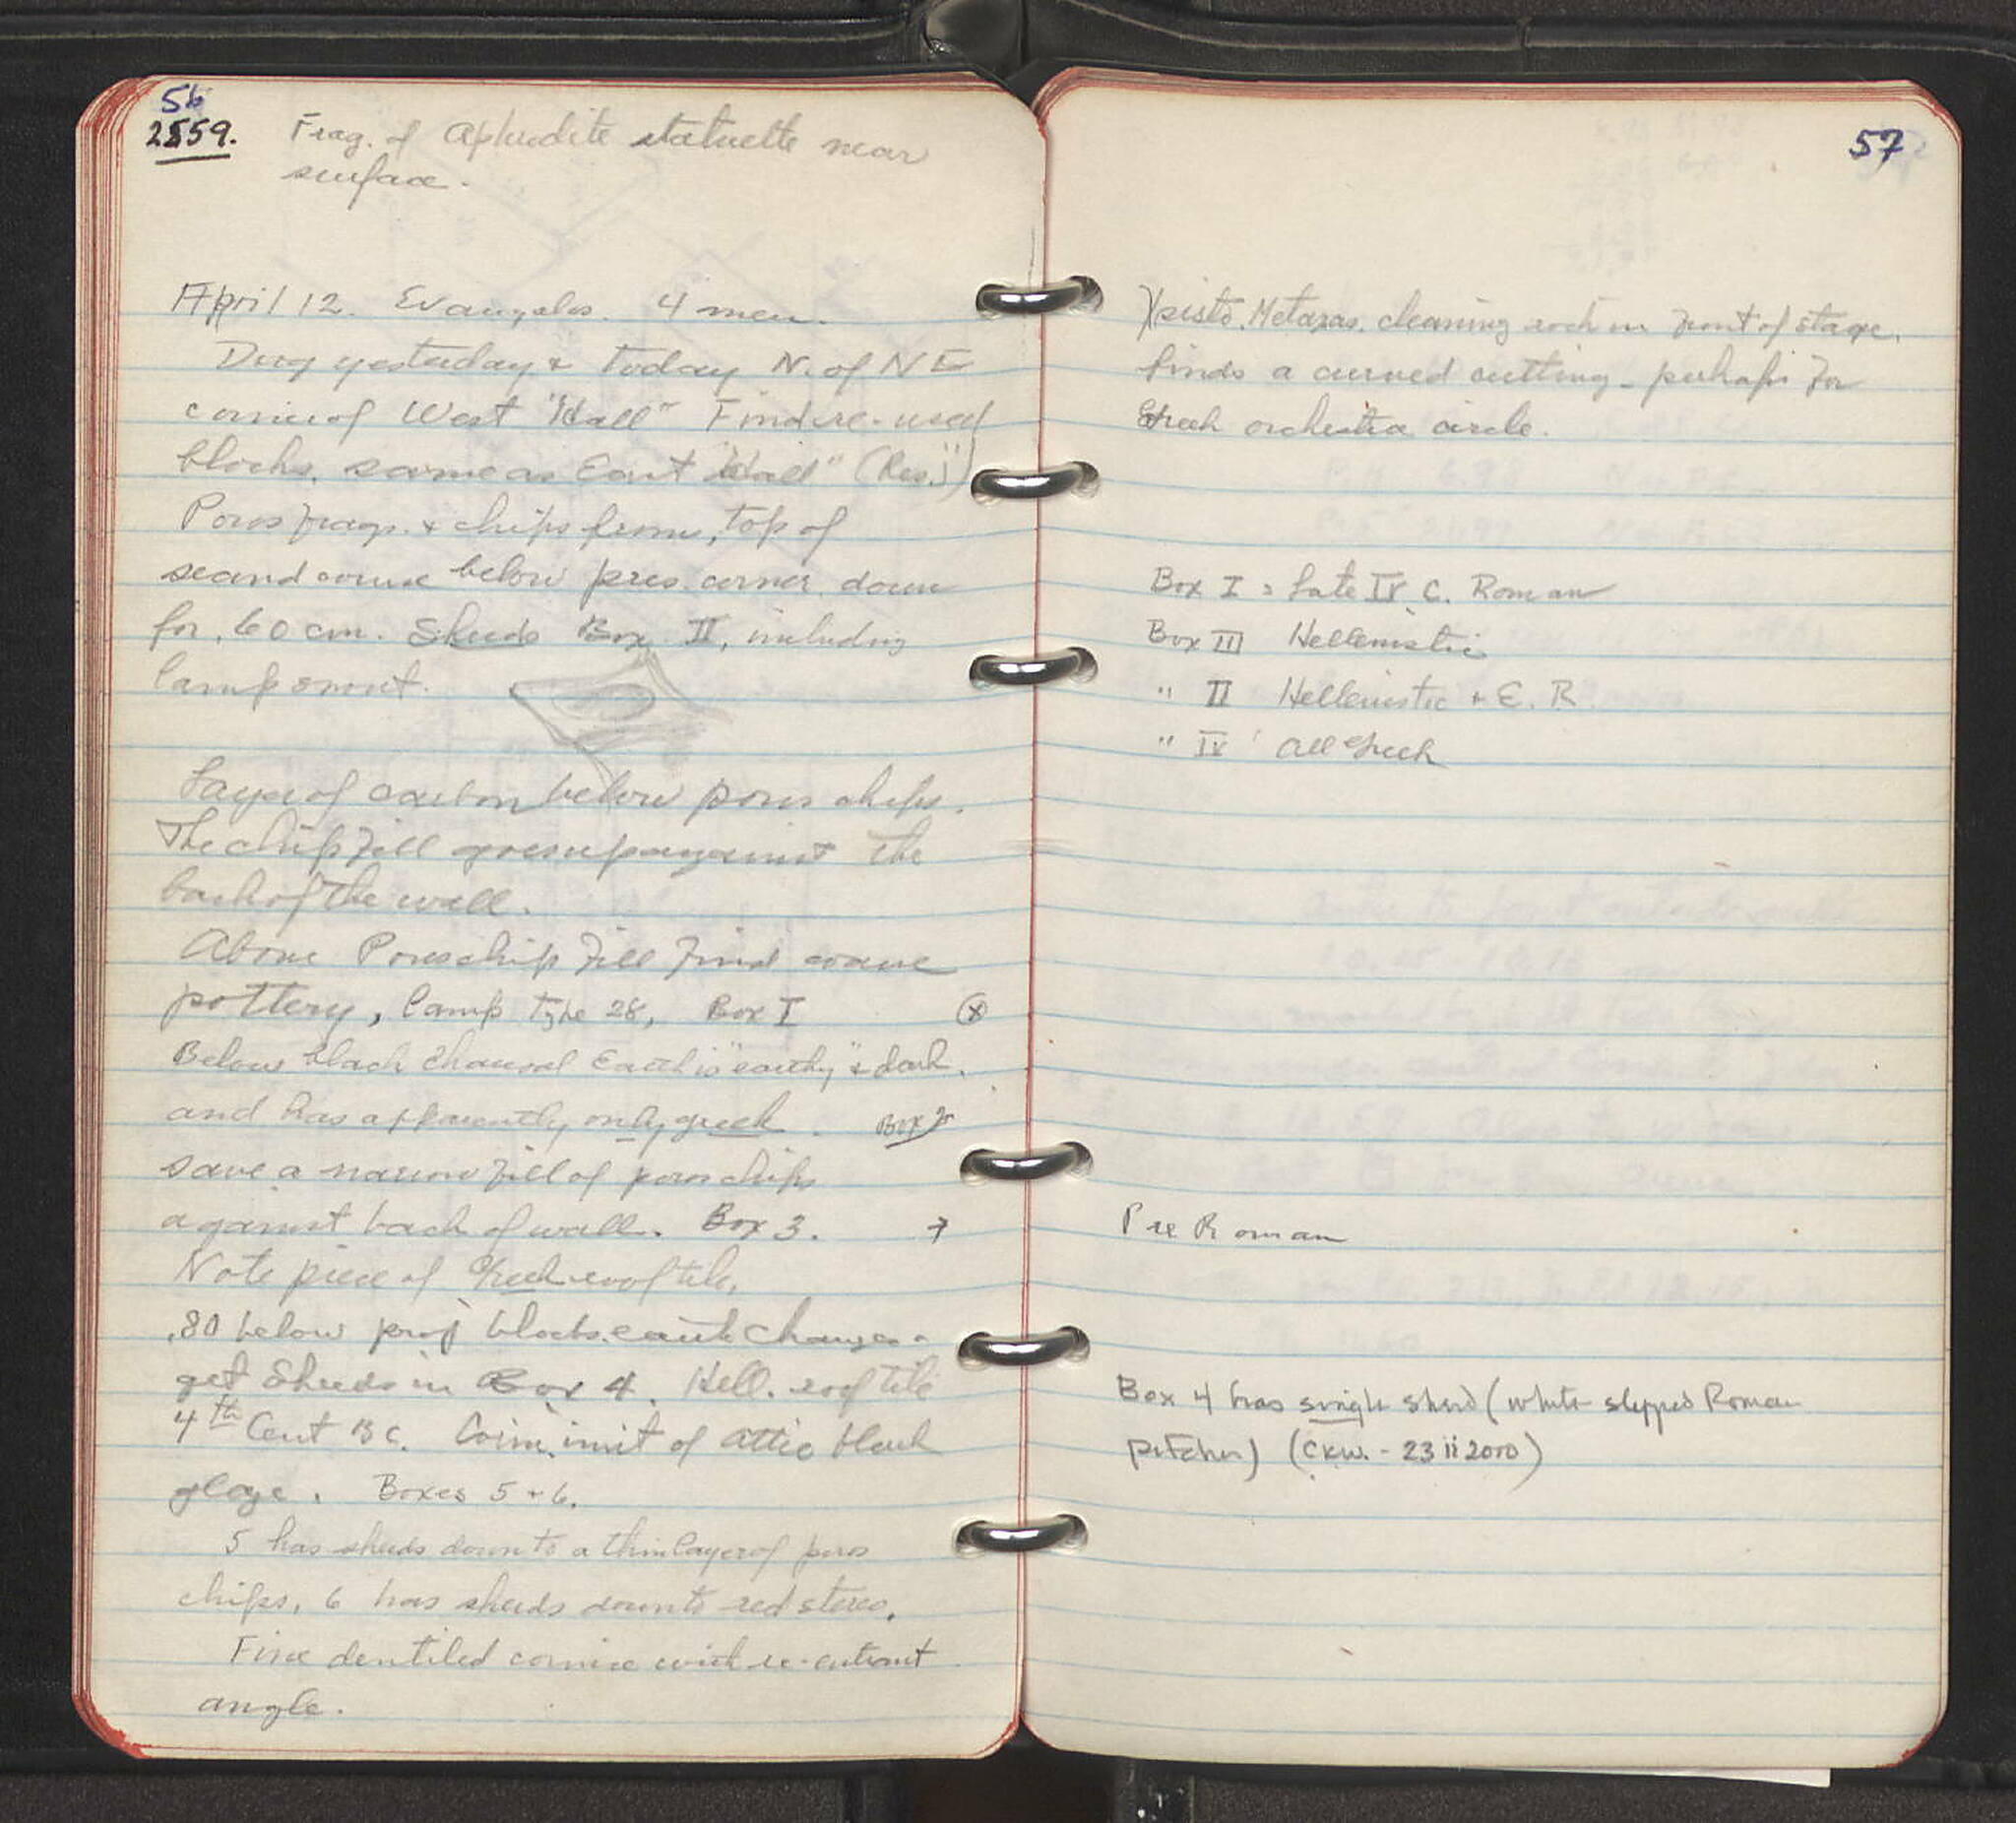 56
2559. Frag. of Aphrodite statuette near
surface.
April 12. Evangelos. 4 men.
Dug yesterday & today N. of NE
corner of West "Hall" Find re-used
blocks, same as East "Hall" (Res.)
Poros frags. & chips from, top of
second course below pres. corner down
for .60 cm. Sherds Box II, including
lamp snout.
Layer of carbon below poros chips.
The chip fill goes up against the
back of the wall.
Above Poros chip fill find coarse
pottery, lamp type 28, Box I (x)
Below black charcoal Earth is "earthy" & dark.
and has apparently only greek. Box 2
save a narrow fill of poros chips
against back of wall. Box 3.
Note piece of Greek roof tile.
.80 below proj blocks earth changes -
get Sherds in Box 4. Hell. roof tile
4th Cent BC. Corin. imit of Attic black
glaze. Boxes 5 + 6.
5 has sherds down to a thin layer of poros
chips, 6 has sherds down to red stereo.
Fine dentiled cornice with re-entrant
angle.
57
Χristo. Metaxas. cleaning rock in front of stage.
finds a curved cutting - perhaps for
Greek orchestra circle.
Box I : Late IV C. Roman
Box III Hellenistic
" II Hellenistic + E. R
" IV All Greek
Pre Roman
Box 4 has single sherd (white slipped Roman
pitcher) (CKW. - 23 ii 2010)